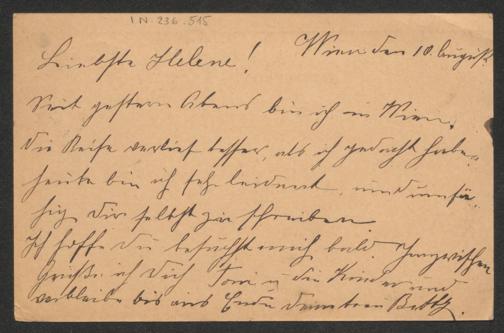 I.N. 236.515
Liebste Helene! Wien den 10. August
Seit gestern Abend bin ich in Wien.
Die Reise verlief besser, als ich gedacht habe.
heute bin ich sehr leidend, und unfä-
hig Dir selbst zu schreiben
Ich hoffe Du besuchst mich bald. Inzwischen
grüße ich Dich Toni u die Kinder und
verbleibe bis ans Ende Deine treu Betty.